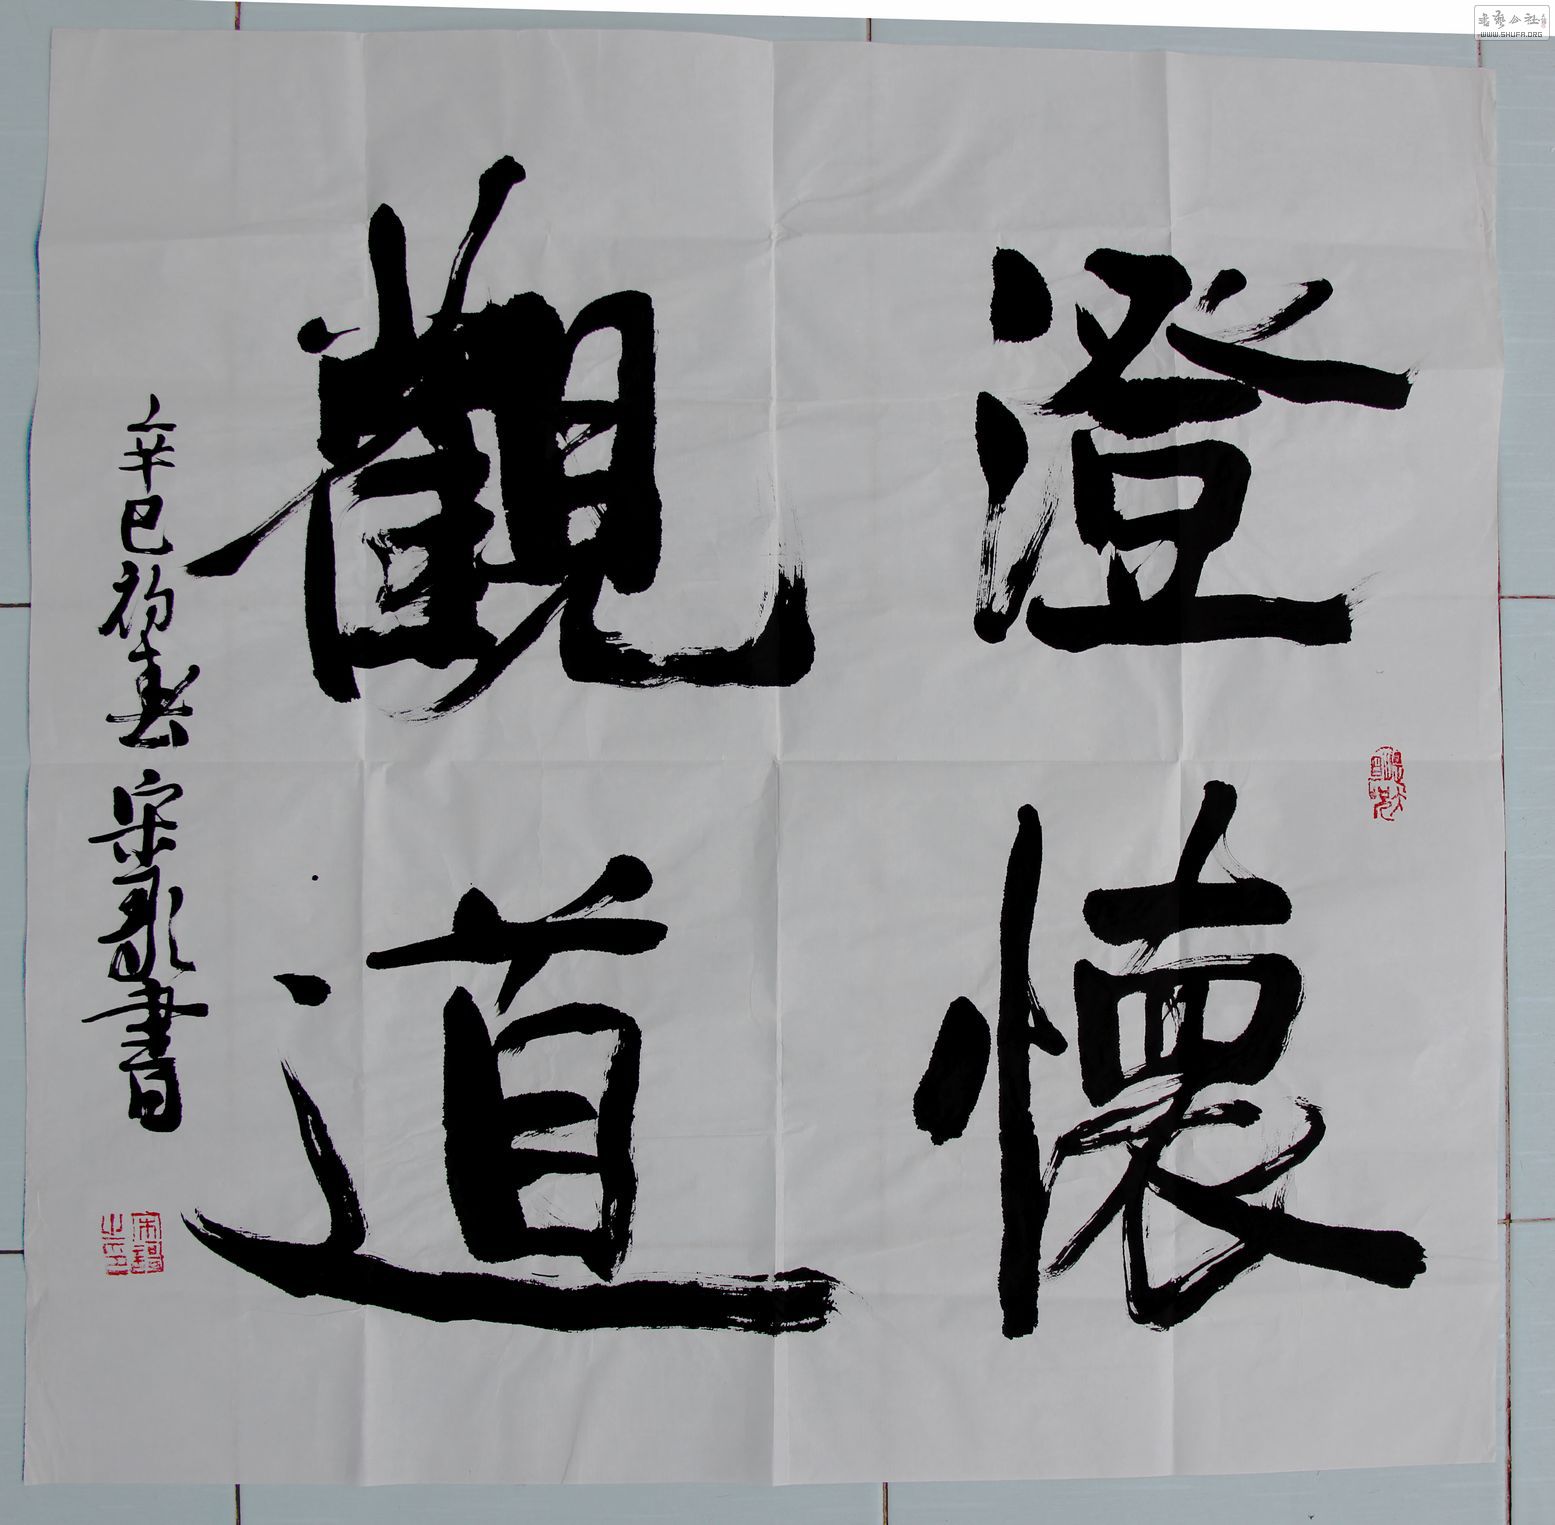 澄懷
觀道
辛巳初春 宋 書
書藝公社
WWW.SHUFA.ORG